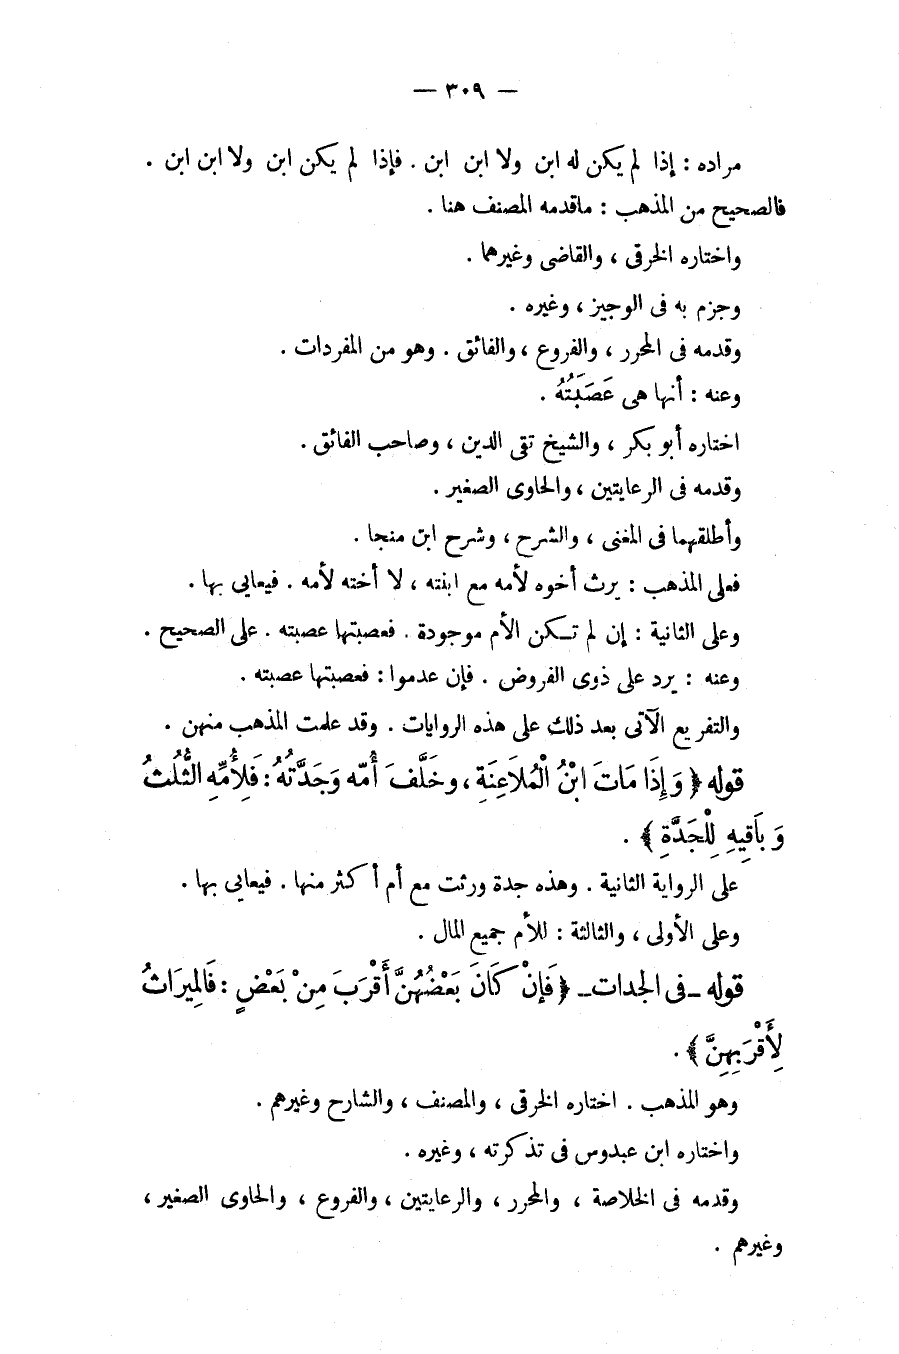 — ٣٠٩ —
مراده : إذا لم يكن له ابن ولا ابن ابن . فإذا لم يكن ابن ولا ابن ابن .
فالصحيح من المذهب : ماقدمه المصنف هنا .
واختاره الخرقى ، والقاضى وغيرهما .
وجزم به فى الوجيز ، وغيره .
وقدمه فى المحرر ، والفروع ، والفائق . وهو من المفردات .
وعنه : أنها هى عَصَبَتُهُ .
اختاره أبو بكر ، والشيخ تقى الدين ، وصاحب الفائق .
وقدمه فى الرعايتين ، والحاوى الصغير .
وأطلقهما فى المغنى ، والشرح ، وشرح ابن منجا .
فعلى المذهب : يرث أخوه لأمه مع ابنته ، لا أخته لأمه . فيعايى بها .
وعلى الثانية : إن لم تكن الأم موجودة . فعصبتها عصبته . على الصحيح .
وعنه : يرد على ذوى الفروض . فإن عدموا : فعصبتها عصبته .
والتفريع الآتى بعد ذلك على هذه الروايات . وقد علمت المذهب منهن .
قوله ﴿ وَإِذَا مَاتَ ابْنُ الْمُلاَعِنَةِ ، وخَلَّفَ أُمَّه وَجَدَّتَهُ : فَلِأُمِّهِ الثُّلُثُ
وَبَاقِيهِ لِلْجَدَّةِ ﴾ .
على الرواية الثانية . وهذه جدة ورثت مع أم أكثر منها . فيعايى بها .
وعلى الأولى ، والثالثة : للأم جميع المال .
قوله ــ فى الجدات ــ ﴿ فَإِنْ كَانَ بَعْضُهُنَّ أَقْرَبَ مِنْ بَعْضٍ : فَالمِيرَاثُ
لِأَقْرَبِهِنَّ ﴾ .
وهو المذهب . اختاره الخرقى ، والمصنف ، والشارح وغيرهم .
واختاره ابن عبدوس فى تذكرته ، وغيره .
وقدمه فى الخلاصة ، والمحرر ، والرعايتين ، والفروع ، والحاوى الصغير ،
وغيرهم .